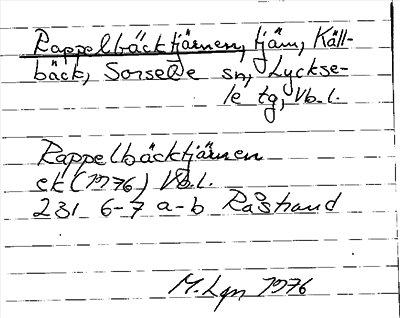 Rappelbäcktjärnen, tjärn, Käll-
bäck, Sorsele sn, Lycksele-
le tg, Vb.l.
Rappelbäcktjärnen
ek (1976) Vb.l.
231 6-7 a-b Råstrand
M. Lgn 1976